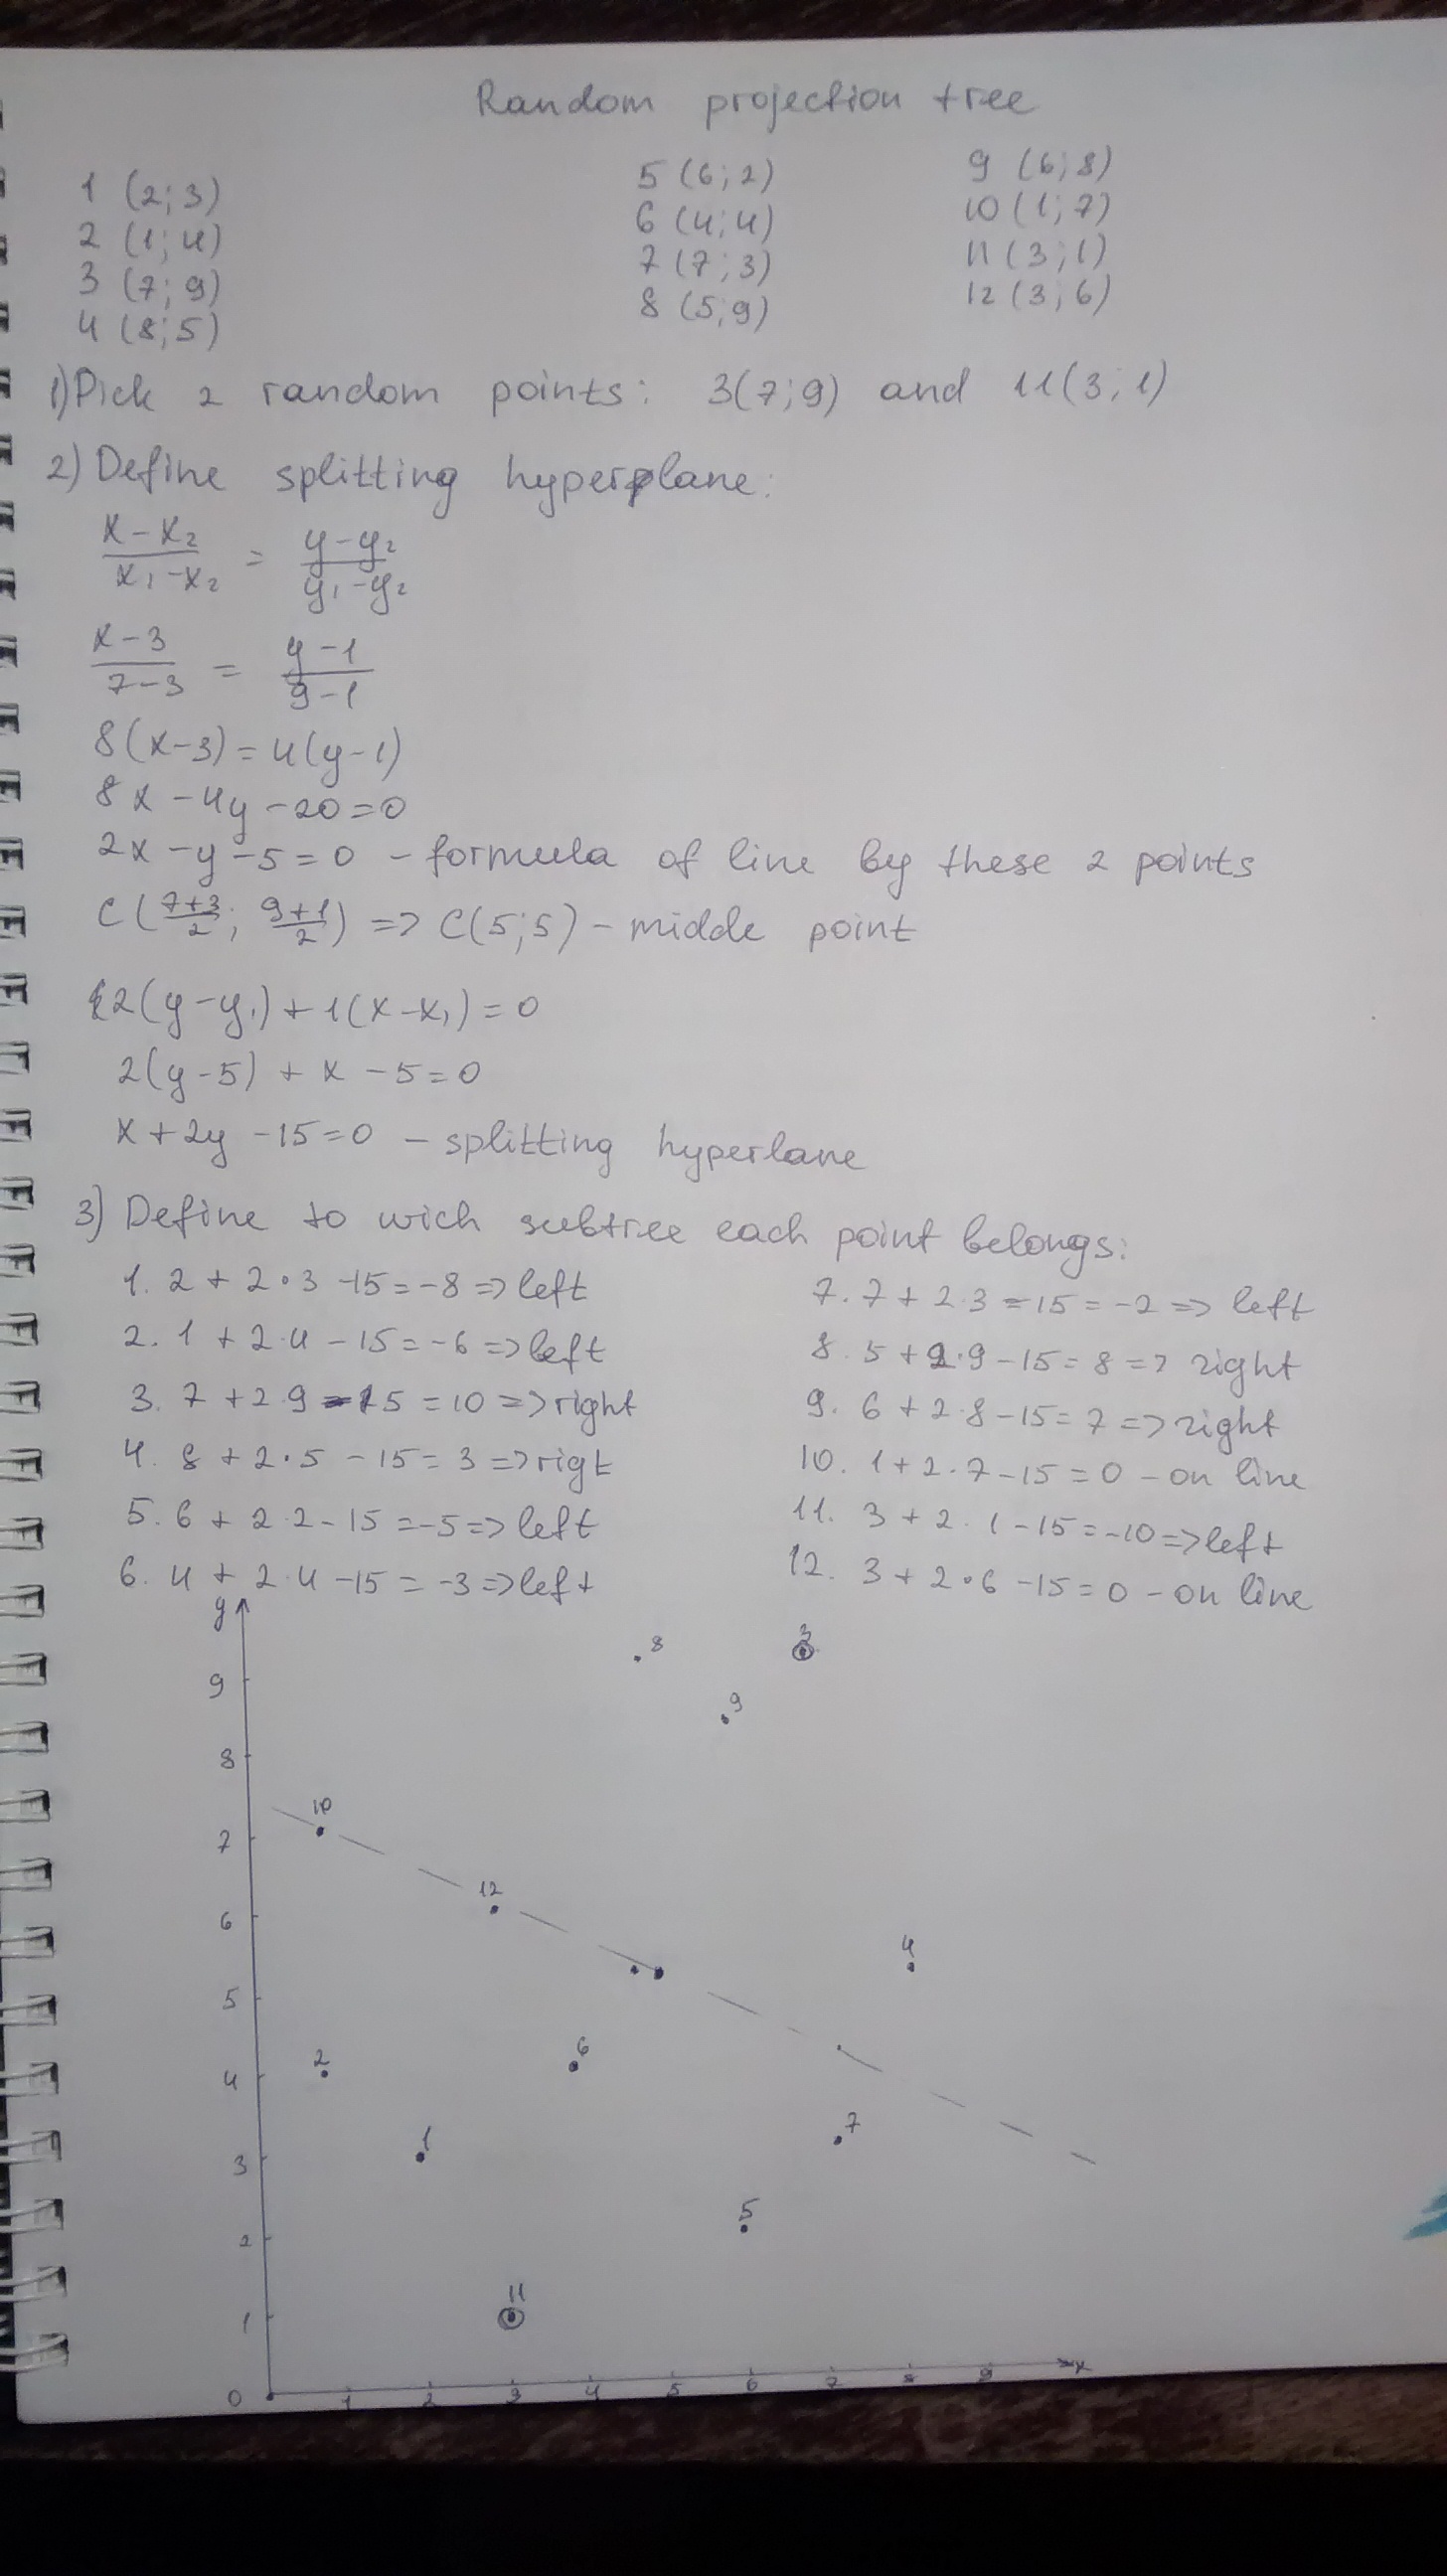 Random projection tree
1 (2; 3)
2 (1; 4)
3 (7; 9)
4 (8; 5)
5 (6; 2)
6 (4; 4)
7 (7; 3)
8 (5; 9)
9 (6; 8)
10 (1; 7)
11 (3; 1)
12 (3; 6)
1) Pick 2 random points: 3(7; 9) and 11(3; 1)
2) Define splitting hyperplane:
(x - x₂)/(x₁ - x₂) = (y - y₂)/(y₁ - y₂)
(x - 3)/(7 - 3) = (y - 1)/(9 - 1)
8(x - 3) = 4(y - 1)
8x - 4y - 20 = 0
2x - y - 5 = 0 - formula of line by these 2 points
C((7+3)/2; (9+1)/2) => C(5; 5) - middle point
2(y - y₁) + 1(x - x₁) = 0
2(y - 5) + x - 5 = 0
x + 2y - 15 = 0 - splitting hyperlane
3) Define to wich subtree each point belongs:
1. 2 + 2·3 - 15 = -8 => left
2. 1 + 2·4 - 15 = -6 => left
3. 7 + 2·9 - 15 = 10 => right
4. 8 + 2·5 - 15 = 3 => rigt
5. 6 + 2·2 - 15 = -5 => left
6. 4 + 2·4 - 15 = -3 => left
7. 7 + 2·3 - 15 = -2 => left
8. 5 + 2·9 - 15 = 8 => right
9. 6 + 2·8 - 15 = 7 => right
10. 1 + 2·7 - 15 = 0 - on line
11. 3 + 2·1 - 15 = -10 => left
12. 3 + 2·6 - 15 = 0 - on line
y
8
3
9
9
8
10
7
12
6
4
5
6
2
4
7
1
3
5
2
11
1
x
0
1 2 3 4 5 6 7 8 9